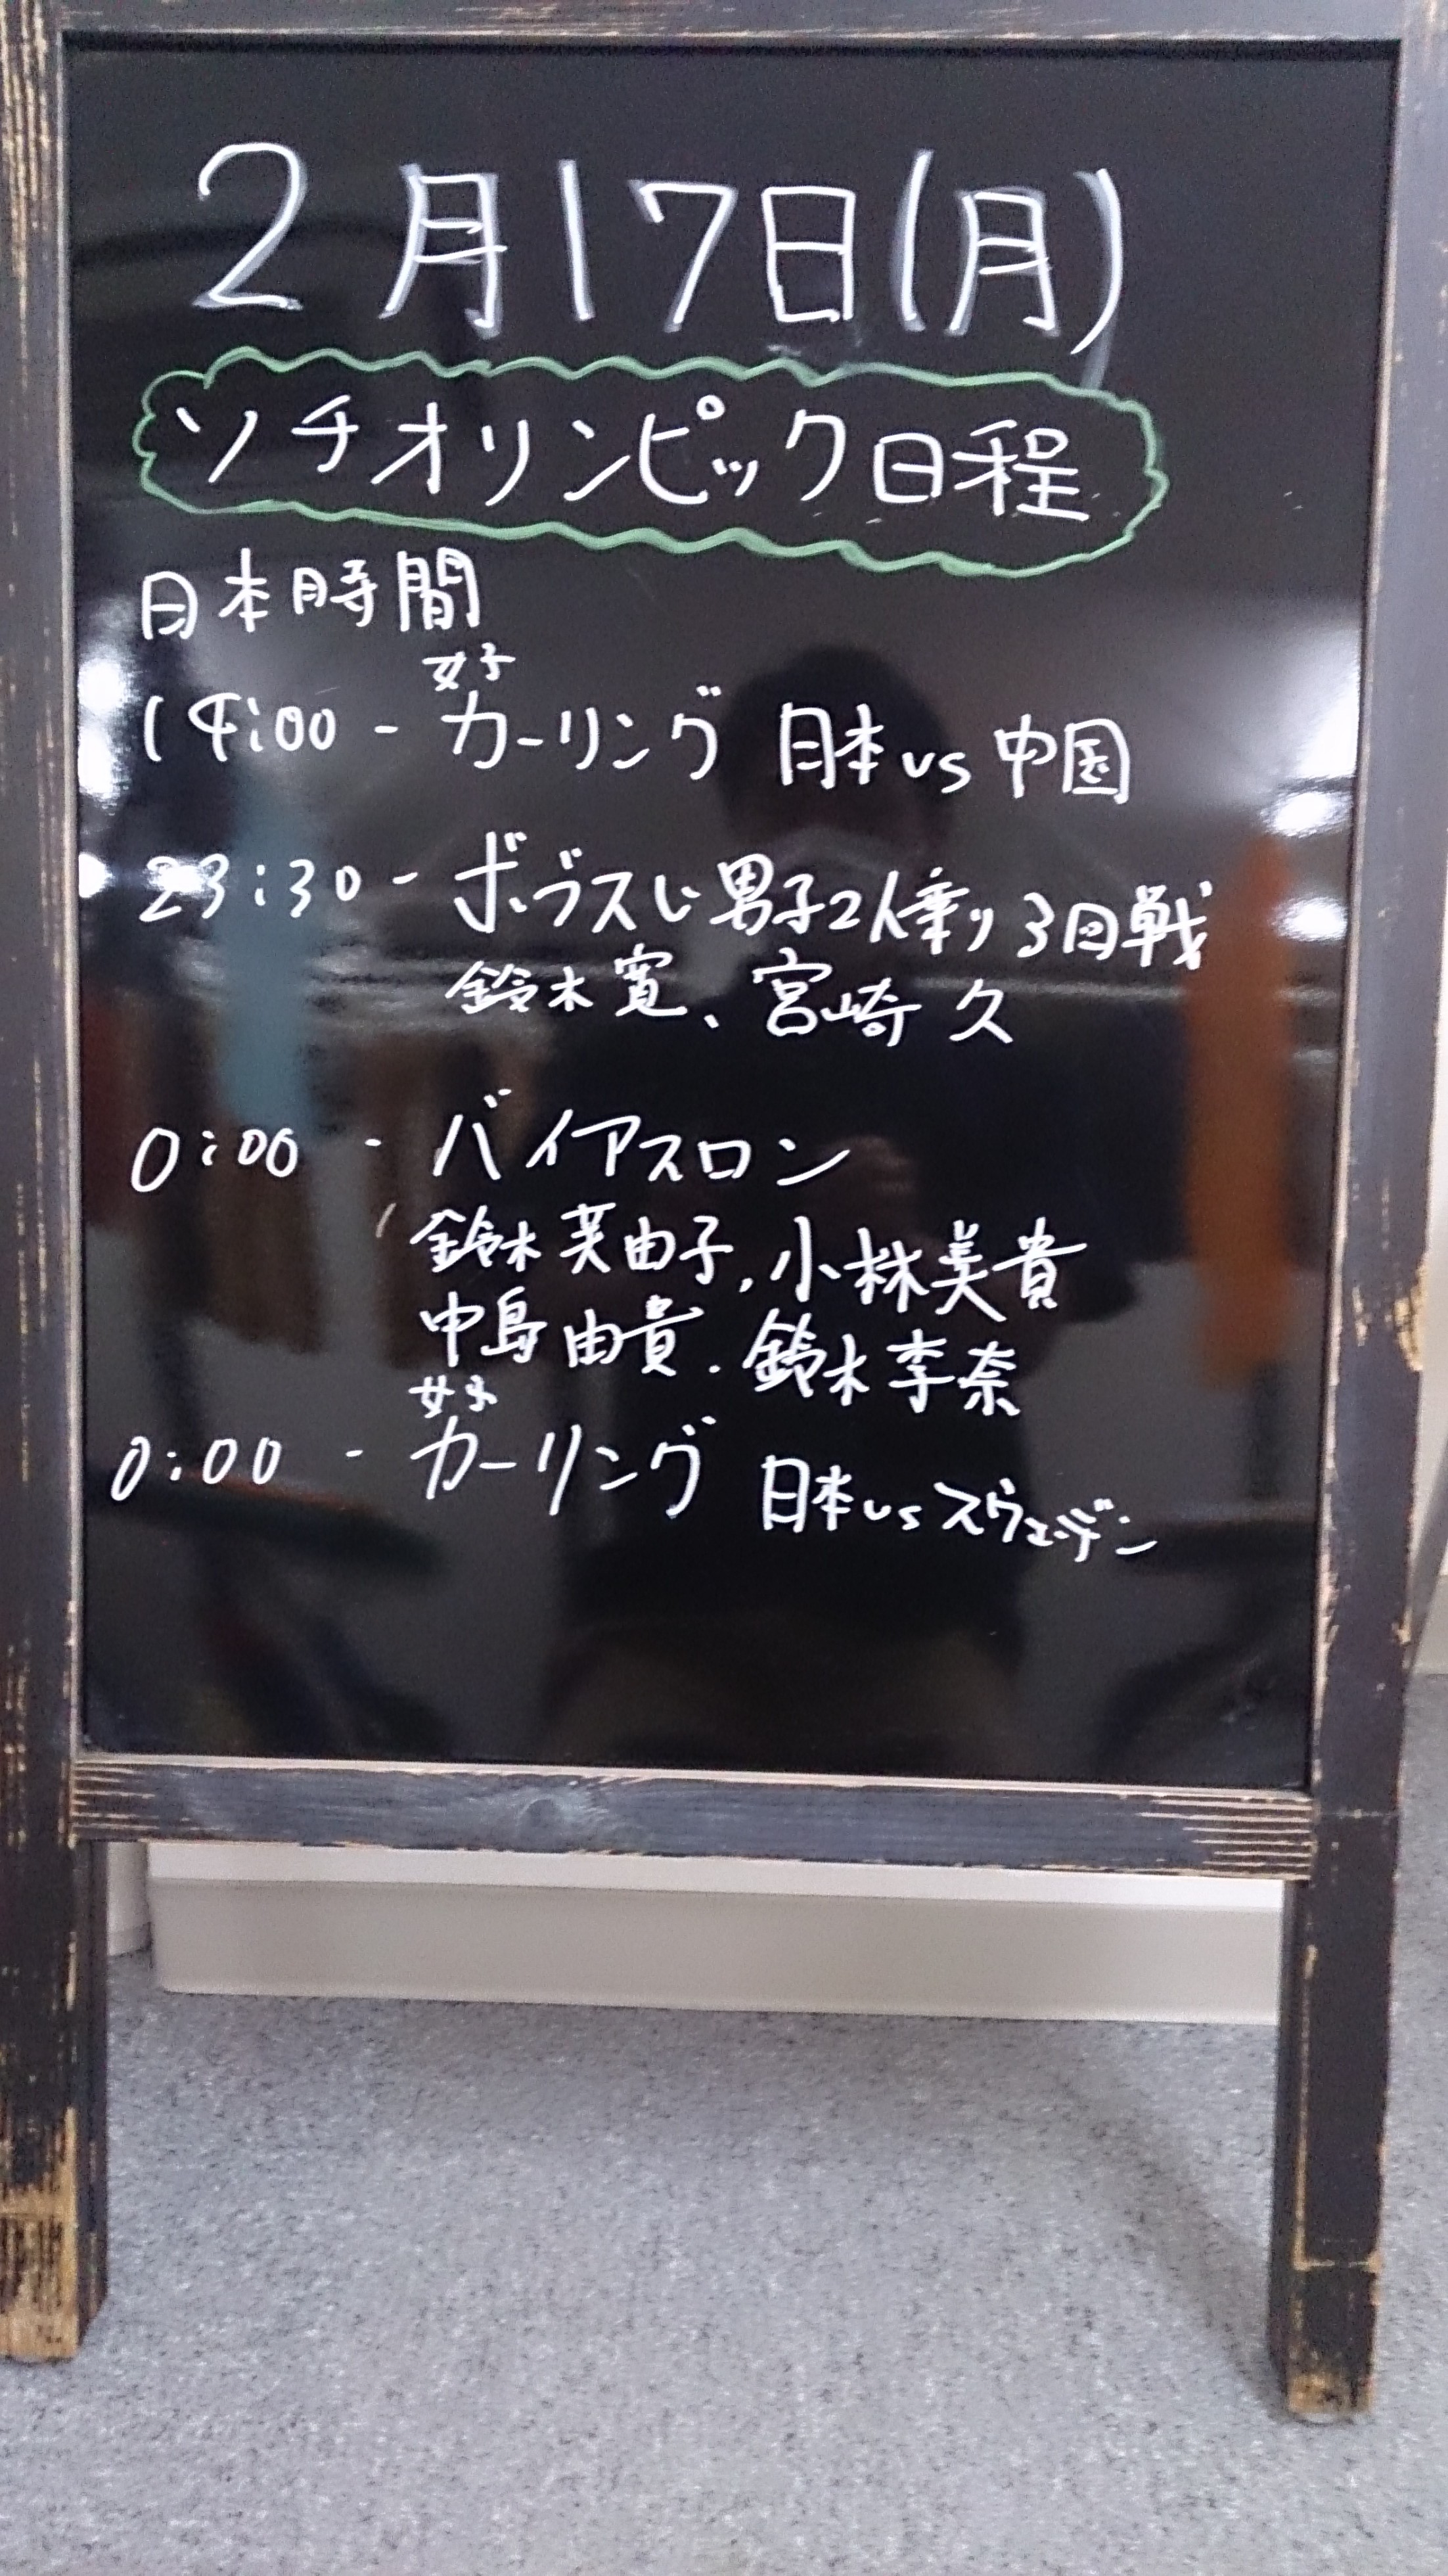 2月17日(月)
ソチオリンピック日程
日本時間
女子
14:00 - カーリング 日本vs中国
23:30 - ボブスレ男子2人乗り3回戦
鈴木寛、宮崎久
0:00 - バイアスロン
鈴木芙由子,小林美貴
中島由貴.鈴木李奈
女子
0:00 - カーリング 日本vsスウェーデン